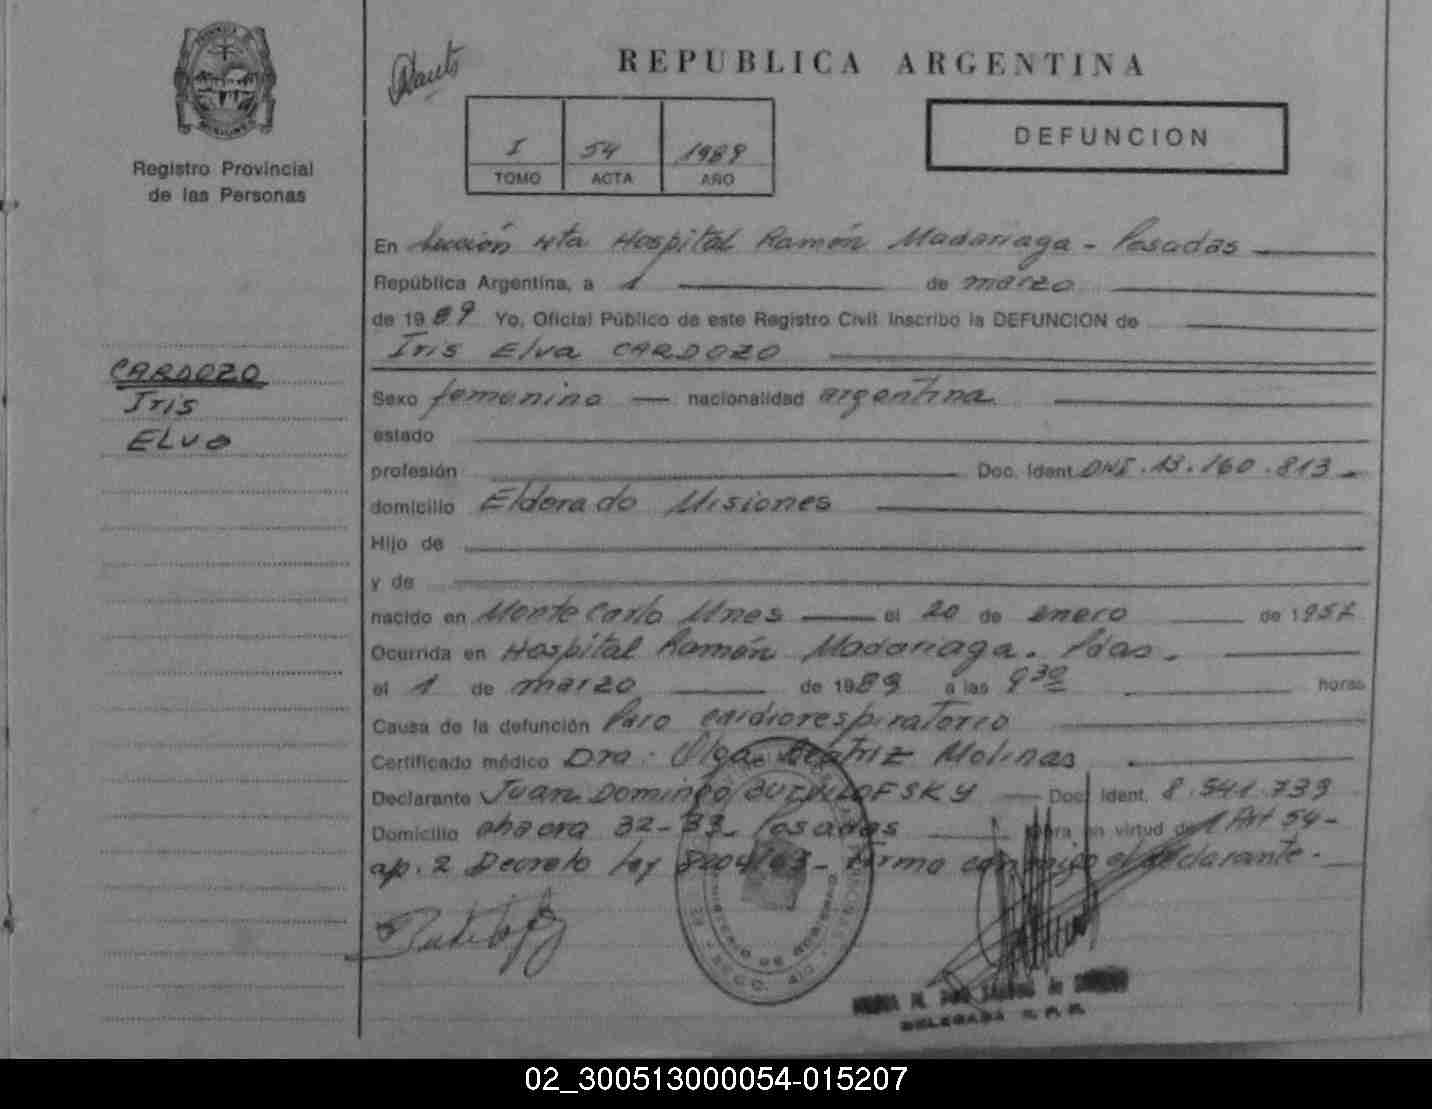 REPUBLICA ARGENTINA
DEFUNCION
I 54 1989
TOMO ACTA AÑO
Registro Provincial
de las Personas
CARDOZO
Iris
ELva
En Sección 4ta Hospital Ramón Madariaga - Posadas
República Argentina, a 1 de marzo
de 1989 Yo, Oficial Público de este Registro Civil Inscribo la DEFUNCION de
Iris Elva CARDOZO
Sexo femenino nacionalidad argentina
estado
profesión Doc. Ident. DNI.13.160.813
domicilio Eldorado Misiones
Hijo de
y de
nacido en Monte Carlo Mnes el 20 de enero de 1957
Ocurrida en Hospital Ramón Madariaga. Pdas.
el 1 de marzo de 1989 a las 9 30 horas
Causa de la defunción Paro cardiorespiratorio
Certificado médico Dra. Olga Beatriz Molinas
Declarante Juan Domingo Doc. Ident. 8.541.739
Domicilio chacra 32-33- Posadas obra en virtud del Art 54-
ap. 2 Decreto ley 8204/63- firma conmigo el declarante.
DELEGADA R. P. P.
02_300513000054-015207